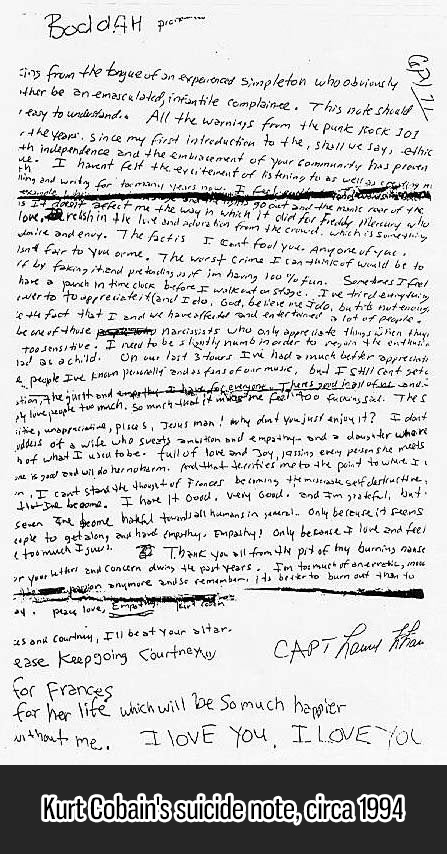 BoddAH
from the tongue of an experienced simpleton who obviously
be an emasculated, infantile complainee. This note should
easy to understand. All the warnings from the punk Rock 101
the years. since my first introduction to the, shall we say, ethic
independence and the embracement of your community has proven
I havent felt the excitement of listening to as well as creating
and writing for too many years now. I feel
go out and the manic roar of the
it doesnt affect me the way in which it did for Freddy Mercury who
love, relish in the love and adoration from the crowd. which is something
and envy. The fact is I cant fool you. Any one of you.
isnt fair to you or me. The worst crime I can think of would be to
by faking it and pretending as if im having 100% fun. Sometimes I feel
have a punch in time clock before I walk out on stage. I've tried everything
to appreciate it (and I do, God, believe me I do, but it's not enough
the fact that I and we have affected and entertained a lot of people.
be one of those narcissists who only appreciate things when they
too sensitive. I need to be slightly numb in order to regain the
as a child. On our last 3 tours I've had a much better
people I've known personally and as fans of our music, but I still cant get
the guilt and empathy I have for everyone. There's good in all of us and
love people too much. So much that it makes me feel too fucking sad. The
unappreciative, pisces, Jesus man! why dont you just enjoy it? I dont
of a wife who sweats ambition and empathy and a daughter who
of what I used to be. full of love and Joy, kissing every person she meets
is good and will do her no harm. And that terrifies me to the point to where I
I cant stand the thought of Frances becoming the miserable self destructive,
Ive become. I have it Good. Very Good. and Im grateful, but
seven Ive become hateful towards all humans in general. Only because it seems
to get along and have empathy. Empathy! Only because I love and feel
too much I guess. Thank you all from the pit of my burning
your letters and Concern during the past years. I'm too much of an erratic,
passion anymore and so remember, its better to burn out than to
peace love, Empathy. Kurt Cobain
and Courtney, I'll be at your altar.
Keep going Courtney
for Frances
for her life which will be so much happier
without me. I LOVE YOU. I LOVE YOU
Kurt Cobain's suicide note, circa 1994